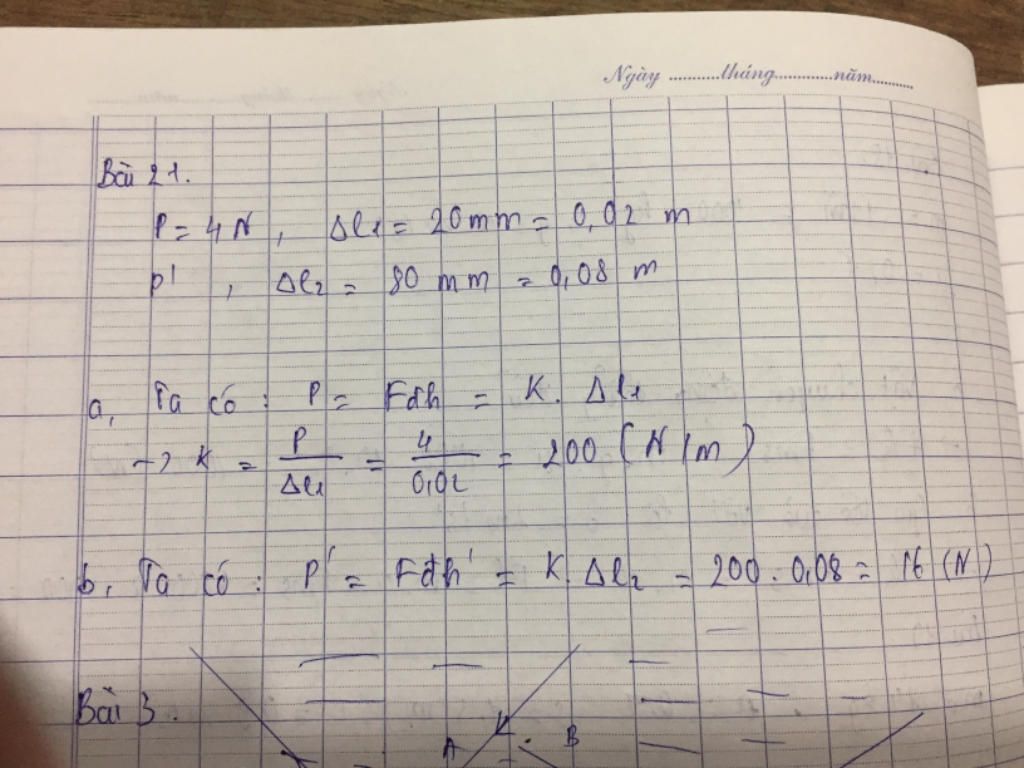 Ngày ...........tháng.............năm.........
Bài 21.
P = 4N, Δl1 = 20mm = 0,02 m
P', Δl2 = 80 mm = 0,08 m
a, Ta có : P = Fđh = K. Δl1
→ K = P/Δl1 = 4/0,02 = 200 (N/m)
b, Ta có : P' = Fđh' = K. Δl2 = 200 . 0,08 = 16 (N)
Bài 3.
A B